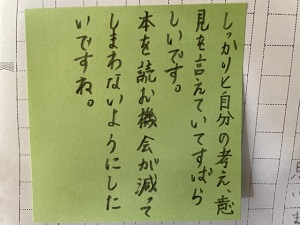 しっかりと自分の考え、意
見を言えていてすばら
しいです。
本を読む機会が減って
しまわないようにした
いですね。